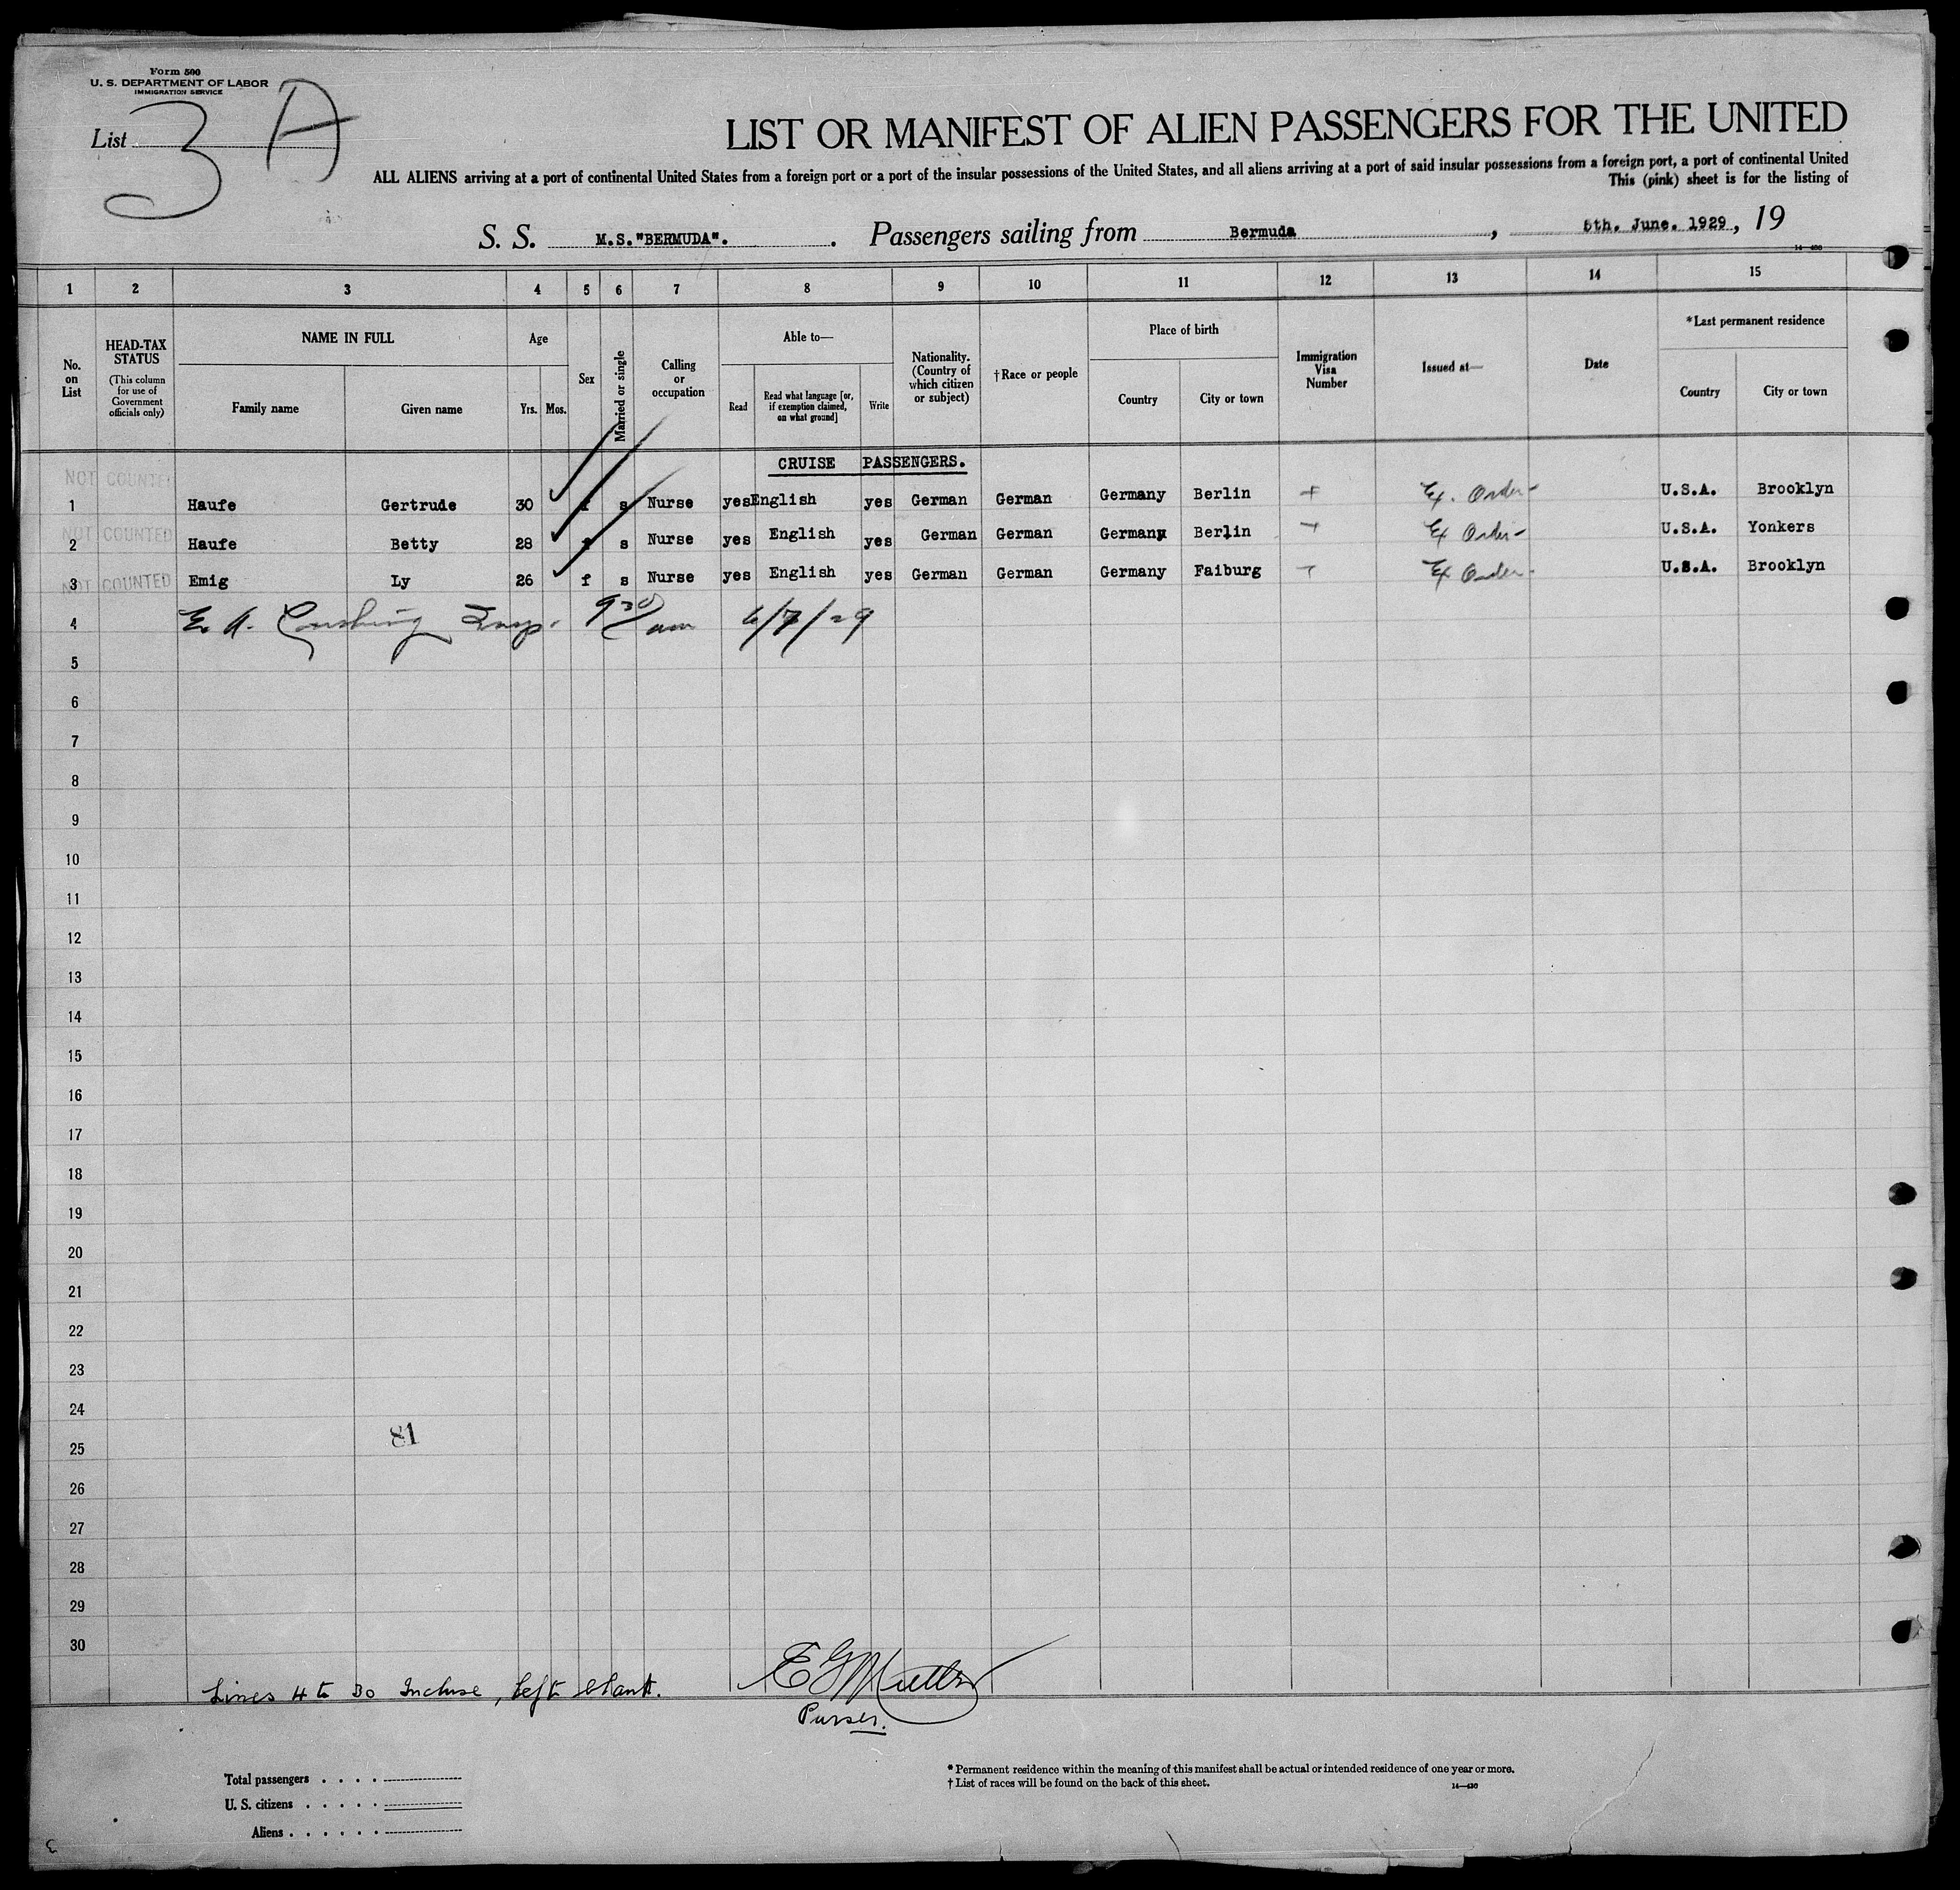 Form 500
U. S. DEPARTMENT OF LABOR
IMMIGRATION SERVICE
List 3 A
LIST OR MANIFEST OF ALIEN PASSENGERS FOR THE UNITED
ALL ALIENS arriving at a port of continental United States from a foreign port or a port of the insular possessions of the United States, and all aliens arriving at a port of said insular possessions from a foreign port, a port of continental United
This (pink) sheet is for the listing of
S. S. M.S."BERMUDA". Passengers sailing from Bermuda, 5th. June. 1929, 19
14—430
1 2 3 4 5 6 7 8 9 10 11 12 13 14 15
No. on List
HEAD-TAX STATUS
(This column for use of Government officials only)
NAME IN FULL
Family name
Given name
Age
Yrs.
Mos.
Sex
Married or single
Calling or occupation
Able to—
Read
Read what language [or, if exemption claimed, on what ground]
Write
Nationality. (Country of which citizen or subject)
†Race or people
Place of birth
Country
City or town
Immigration Visa Number
Issued at—
Date
*Last permanent residence
Country
City or town
CRUISE PASSENGERS.
NOT COUNTED
1 Haufe Gertrude 30 f s Nurse yes English yes German German Germany Berlin Ex. Order- U.S.A. Brooklyn
NOT COUNTED
2 Haufe Betty 28 f s Nurse yes English yes German German Germany Berlin Ex Order- U.S.A. Yonkers
NOT COUNTED
3 Emig Ly 26 f s Nurse yes English yes German German Germany Faiburg Ex Order- U.S.A. Brooklyn
4 E. A. Cushing Insp. 9 30 am 6/7/29
5
6
7
8
9
10
11
12
13
14
15
16
17
18
19
20
21
22
23
24
81
25
26
27
28
29
30
Lines 4 to 30 Incluse, left blank.
Purser.
Total passengers
U. S. citizens
Aliens
* Permanent residence within the meaning of this manifest shall be actual or intended residence of one year or more.
† List of races will be found on the back of this sheet.
14—430